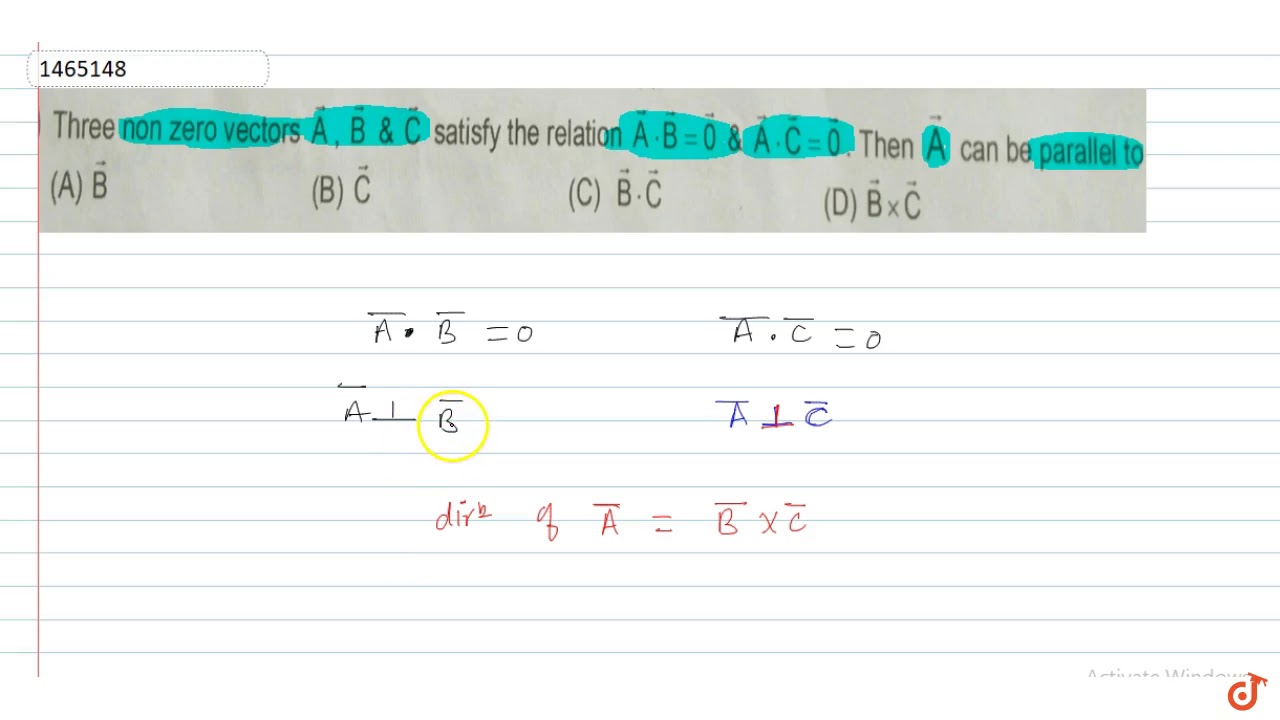 1465148
Three non zero vectors A⃗ , B⃗ & C⃗ satisfy the relation A⃗ · B⃗ = 0⃗ & A⃗ · C⃗ = 0⃗ . Then A⃗ can be parallel to
(A) B⃗ (B) C⃗ (C) B⃗ · C⃗ (D) B⃗ × C⃗
A̅ · B̅ = 0 A̅ . C̅ = 0
A̅ ⊥ B̅ A̅ ⊥ C̅
dirⁿ of A̅ = B̅ × C̅
Activate Windows